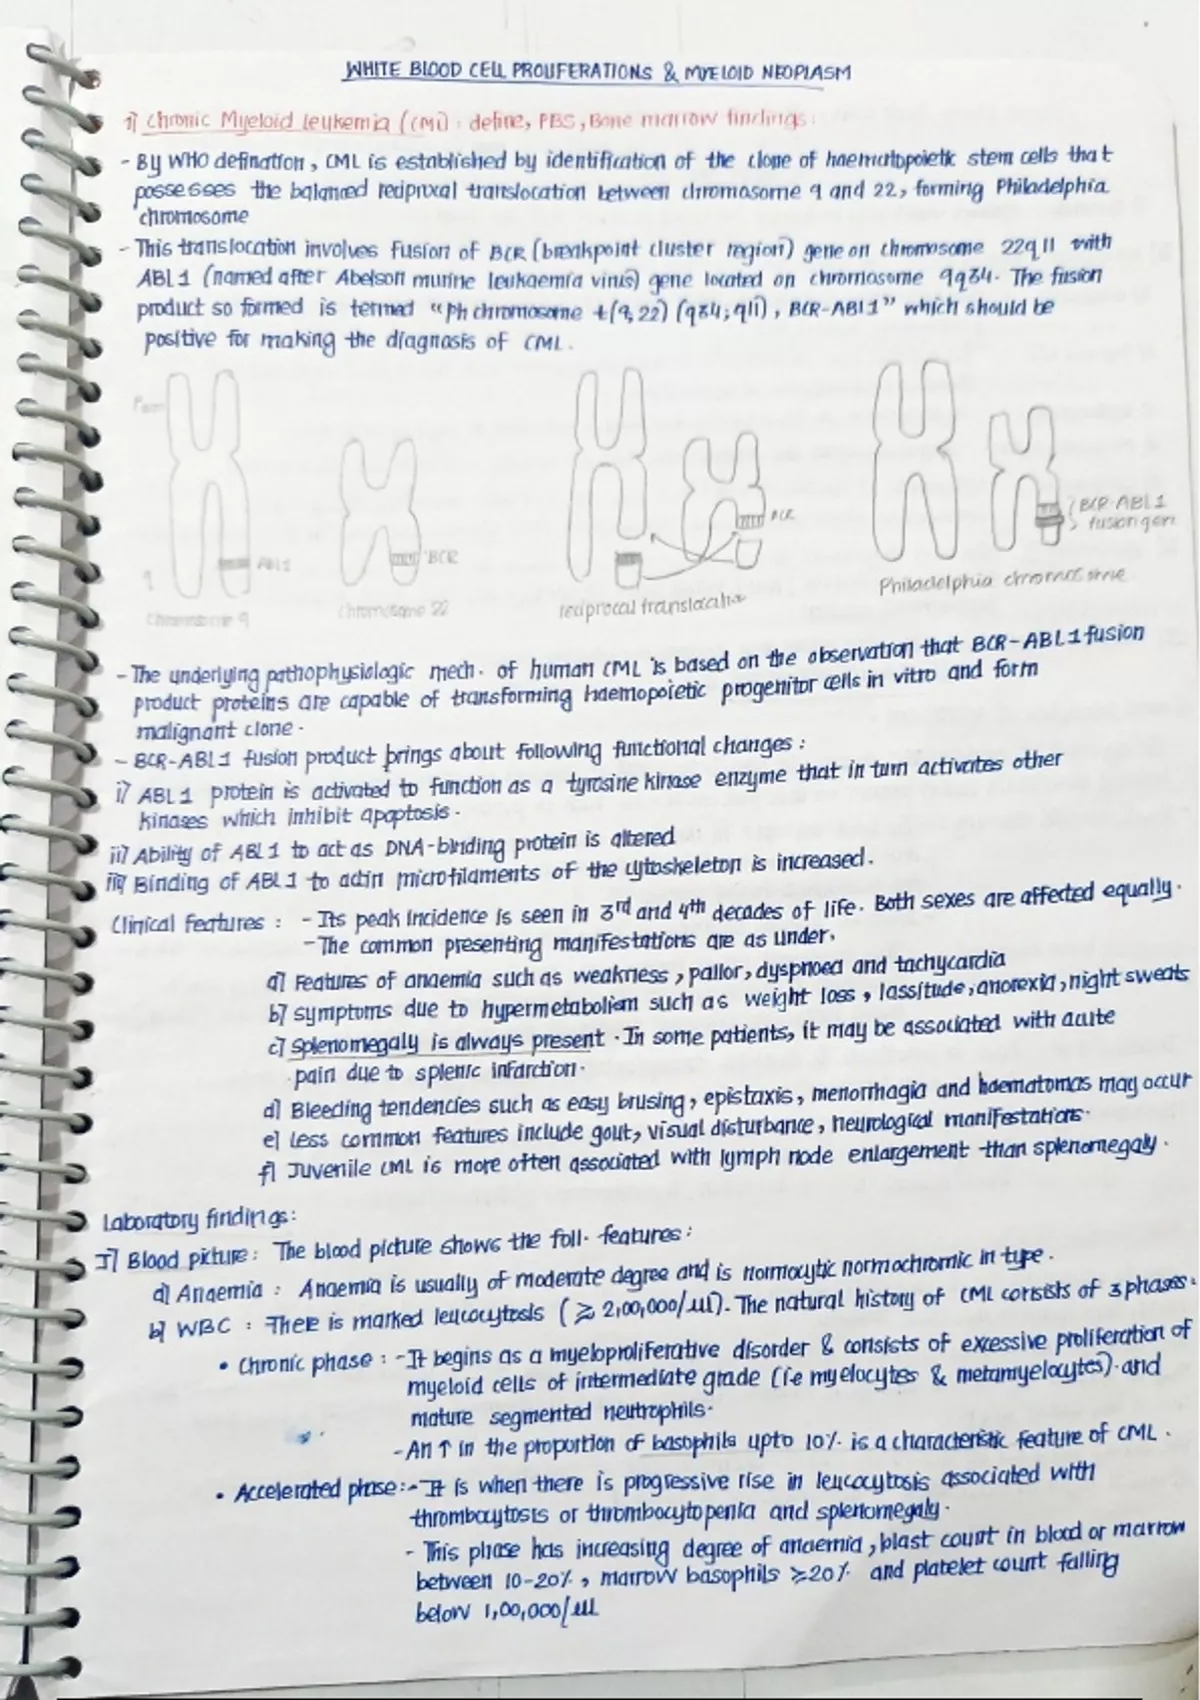 WHITE BLOOD CELL PROLIFERATIONS & MYELOID NEOPLASM
1) Chronic Myeloid leukemia (CML) : define, PBS, Bone marrow findings:
- By WHO defination, CML is established by identification of the clone of haematopoietic stem cells that
possesses the balanced reciprocal translocation between chromosome 9 and 22, forming Philadelphia
chromosome
- This translocation involves fusion of BCR (breakpoint cluster region) gene on chromosome 22q11 with
ABL1 (named after Abelson murine leukaemia virus) gene located on chromosome 9q34. The fusion
product so formed is termed "Ph chromosome t(9,22) (q34;q11), BCR-ABL1" which should be
positive for making the diagnosis of CML.
P
q
ABL1
Chromosome 9
BCR
Chromosome 22
BCR
reciprocal translocatio
BCR-ABL1
fusion gen
Philadelphia chromosome
- The underlying pathophysiologic mech. of human CML is based on the observation that BCR-ABL1 fusion
product proteins are capable of transforming haemopoietic progenitor cells in vitro and form
malignant clone.
- BCR-ABL1 fusion product brings about following functional changes:
i) ABL1 protein is activated to function as a tyrosine kinase enzyme that in turn activates other
kinases which inhibit apoptosis.
ii) Ability of ABL1 to act as DNA-binding protein is altered
iii) Binding of ABL1 to actin microfilaments of the cytoskeleton is increased.
Clinical features : - Its peak incidence is seen in 3rd and 4th decades of life. Both sexes are affected equally.
- The common presenting manifestations are as under.
a) Features of anaemia such as weakness, pallor, dyspnoea and tachycardia
b) symptoms due to hypermetabolism such as weight loss, lassitude, anorexia, night sweats
c) Splenomegaly is always present. In some patients, it may be associated with acute
pain due to splenic infarction.
d) Bleeding tendencies such as easy brusing, epistaxis, menorrhagia and haematomas may occur
e) less common features include gout, visual disturbance, neurological manifestations.
f) Juvenile CML is more often associated with lymph node enlargement than splenomegaly.
Laboratory findings:
I) Blood picture: The blood picture shows the foll. features:
a) Anaemia : Anaemia is usually of moderate degree and is normocytic normochromic in type.
b) WBC : There is marked leucocytosis (≥ 2,00,000/µl). The natural history of CML consists of 3 phases.
• Chronic phase : - It begins as a myeloproliferative disorder & consists of excessive proliferation of
myeloid cells of intermediate grade (i.e myelocytes & metamyelocytes) and
mature segmented neutrophils.
- An ↑ in the proportion of basophils upto 10% is a characteristic feature of CML.
• Accelerated phase : - It is when there is progressive rise in leucocytosis associated with
thrombocytosis or thrombocytopenia and splenomegaly.
- This phase has increasing degree of anaemia, blast count in blood or marrow
between 10-20%, marrow basophils ≥20% and platelet count falling
below 1,00,000/µl